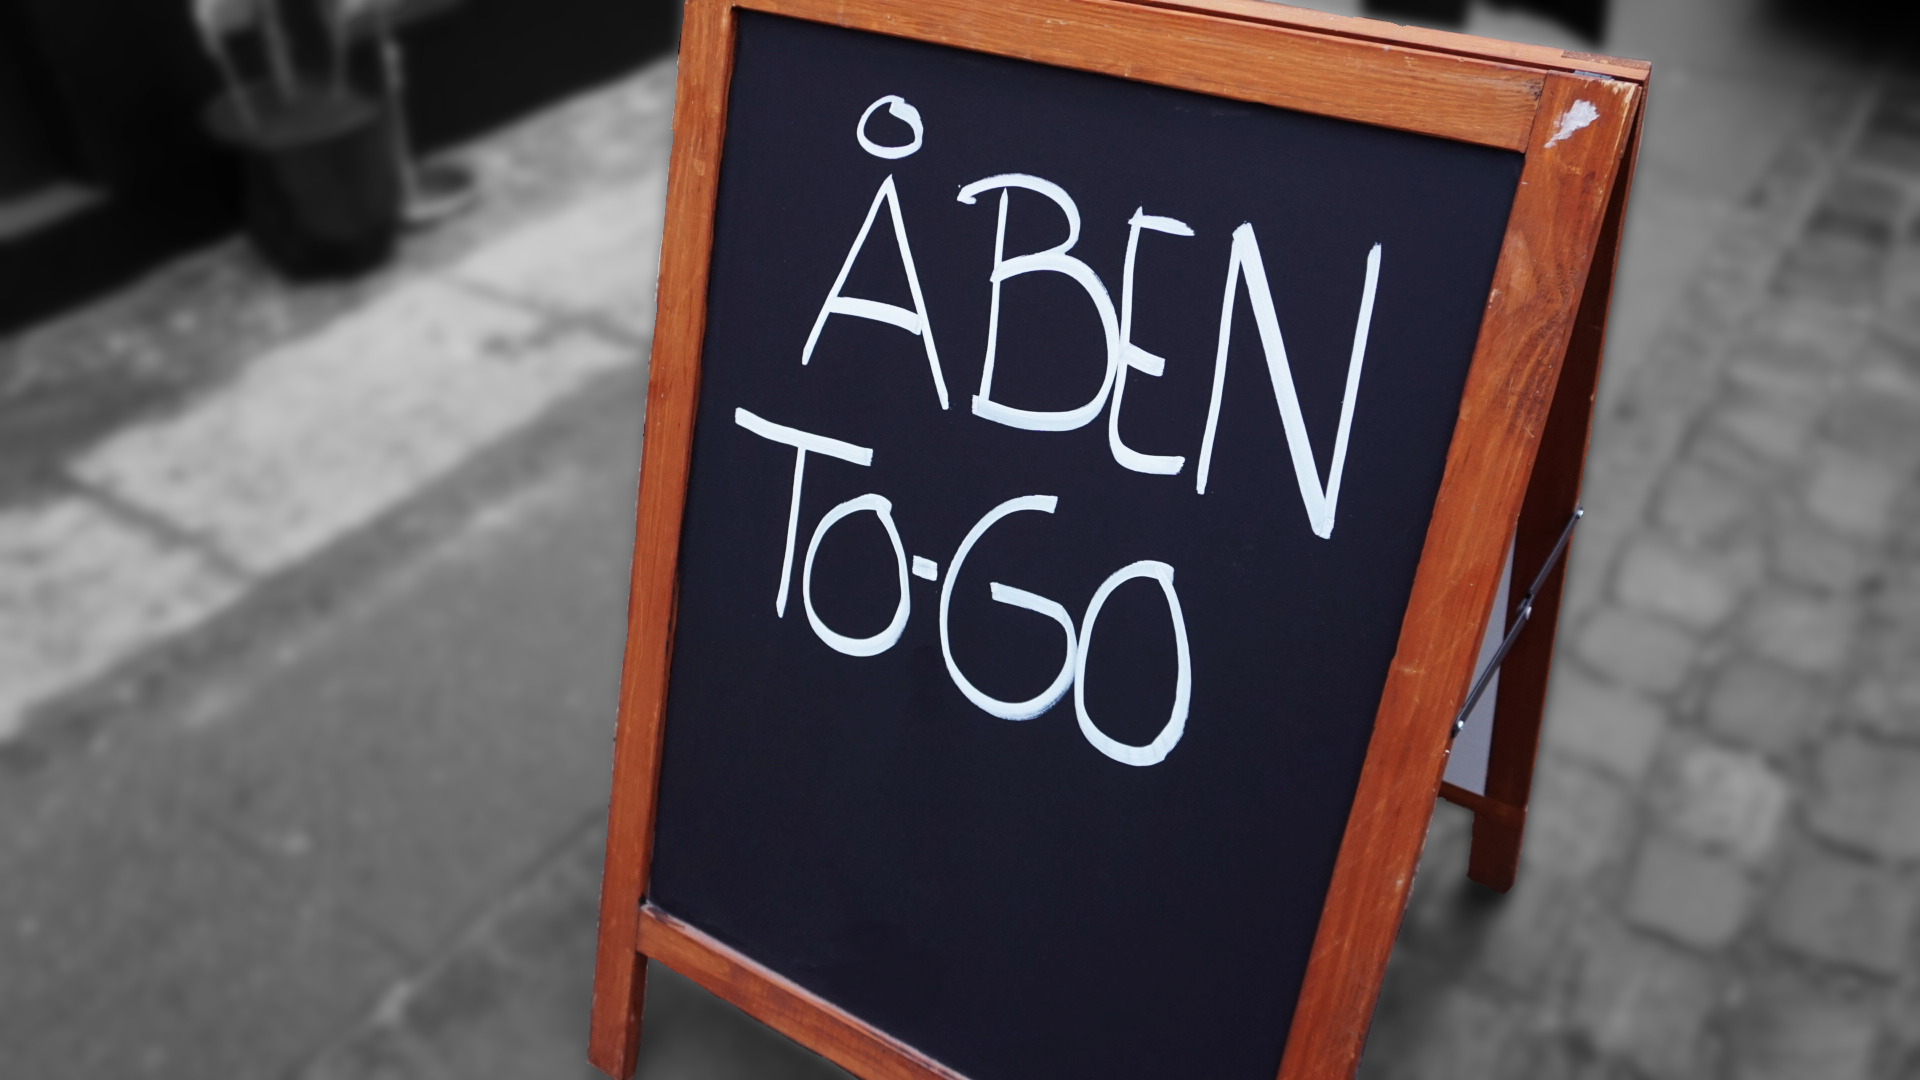 ÅBEN
TO-GO